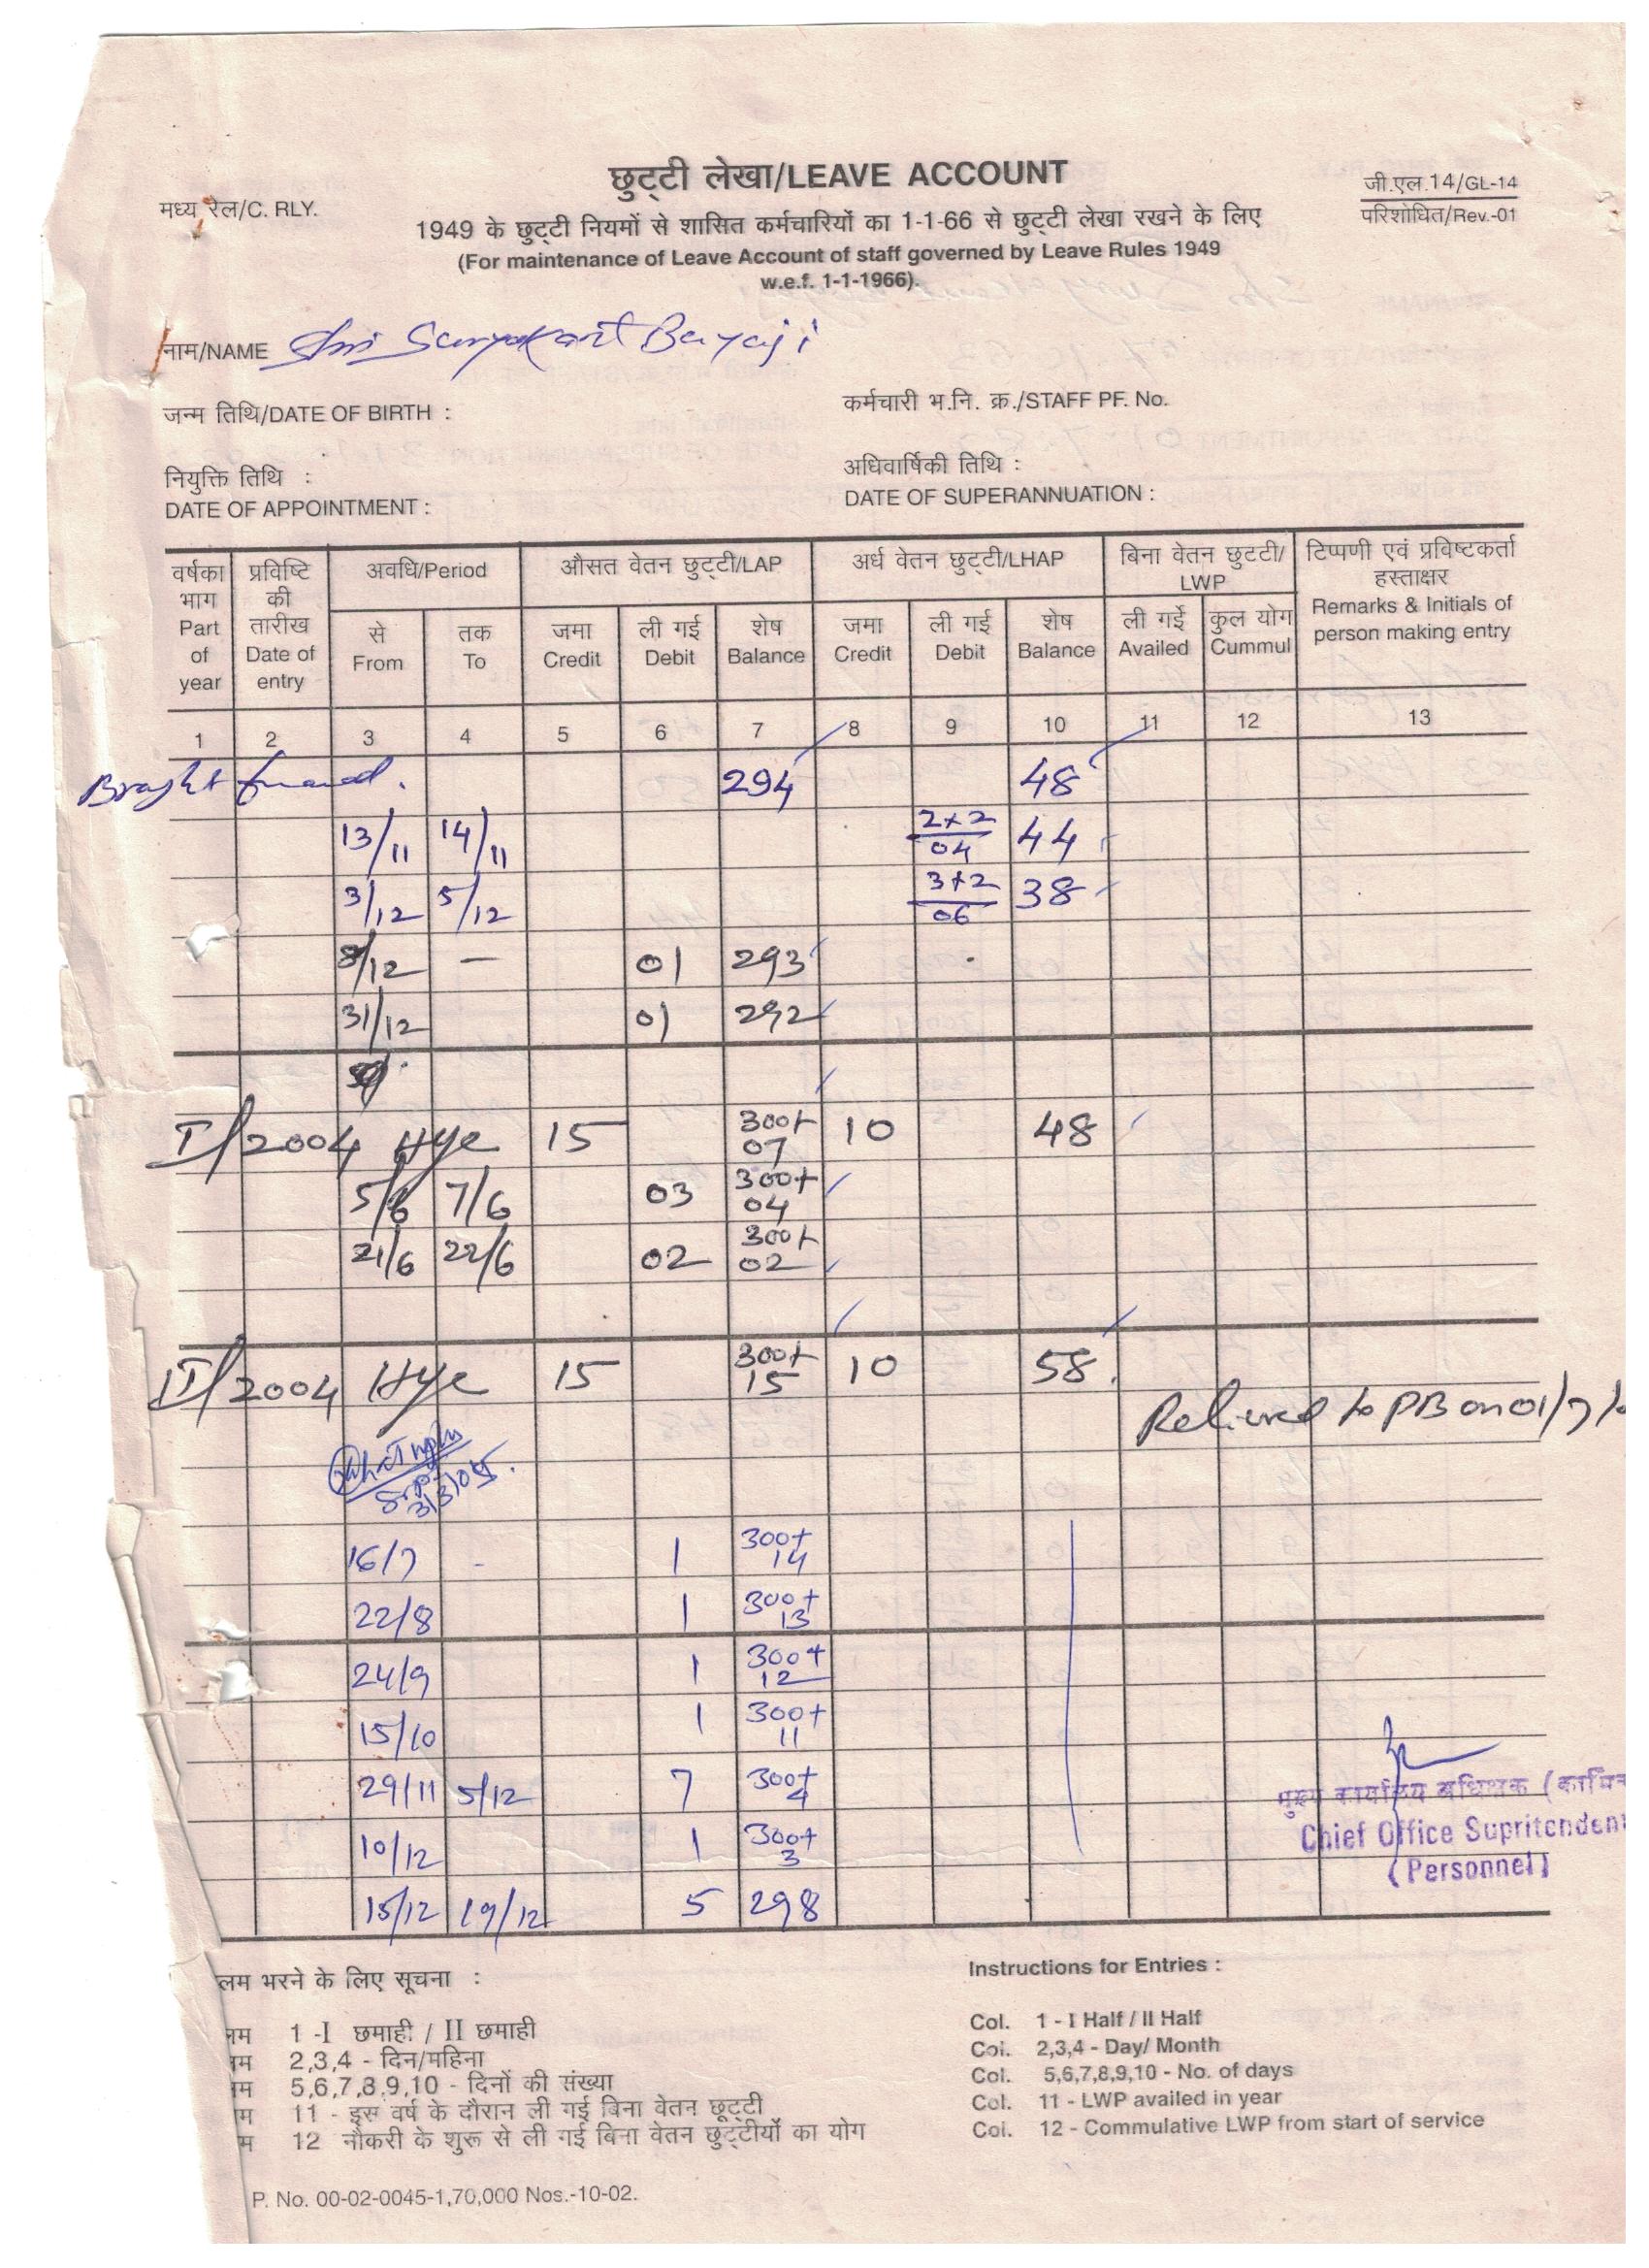 छुट्टी लेखा/LEAVE ACCOUNT
मध्य रेल/C. RLY.
जी.एल.14/GL-14
परिशोधित/Rev.-01
1949 के छुट्टी नियमों से शासित कर्मचारियों का 1-1-66 से छुट्टी लेखा रखने के लिए
(For maintenance of Leave Account of staff governed by Leave Rules 1949
w.e.f. 1-1-1966).
नाम/NAME Shri Suryakant Bayaji
जन्म तिथि/DATE OF BIRTH :
कर्मचारी भ.नि. क्र./STAFF PF. No.
नियुक्ति तिथि :
DATE OF APPOINTMENT :
अधिवार्षिकी तिथि :
DATE OF SUPERANNUATION :
वर्षका भाग Part of year
प्रविष्टि की तारीख Date of entry
अवधि/Period
से From
तक To
औसत वेतन छुट्टी/LAP
जमा Credit
ली गई Debit
शेष Balance
अर्ध वेतन छुट्टी/LHAP
जमा Credit
ली गई Debit
शेष Balance
बिना वेतन छुटटी/ LWP
ली गईे Availed
कुल योग Cummul
टिप्पणी एवं प्रविष्टकर्ता हस्ताक्षर
Remarks & Initials of person making entry
1 2 3 4 5 6 7 8 9 10 11 12 13
Braght frward. 294 48
13/11 14/11 2+2 04 44
3/12 5/12 3+2 06 38
8/12 — 01 293
31/12 01 292
I/2004 Hye 15 300+ 07 10 48
5/6 7/6 03 300+ 04
21/6 22/6 02 300+ 02
II/2004 Hye 15 300+ 15 10 58.
Relieved to PB on 01/7/
3/3/05.
16/7 - 1 300+ 14
22/8 1 300+ 13
24/9 1 300+ 12
15/10 1 300+ 11
29/11 5/12 7 300+ 4
10/12 1 300+ 3
15/12 19/12 5 298
मुख्य कार्यालय अधिक्षक (कार्मि
Chief Office Supritendent
(Personnel)
लम भरने के लिए सूचना :
लम 1 -I छमाही / II छमाही
म 2,3,4 - दिन/महिना
म 5,6,7,8,9,10 - दिनों की संख्या
म 11 - इस वर्ष के दौरान ली गई बिना वेतन छूट्टी
म 12 नौकरी के शुरू से ली गई बिना वेतन छुट्टीयों का योग
Instructions for Entries :
Col. 1 - I Half / II Half
Col. 2,3,4 - Day/ Month
Col. 5,6,7,8,9,10 - No. of days
Col. 11 - LWP availed in year
Col. 12 - Commulative LWP from start of service
P. No. 00-02-0045-1,70,000 Nos.-10-02.